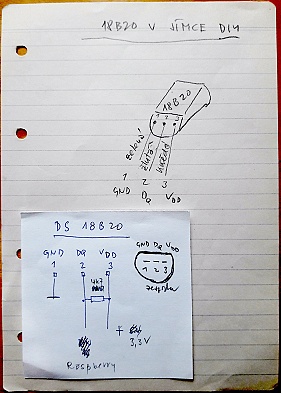 18B20 V JÍMCE DIY
18B20
1 2 3
žlutá
hnědá
1 2 3
GND DQ VDD
DS 18B20
GND DQ VDD
1 2 3
4k7
GND DQ VDD
1 2 3
+
3,3V
Raspberry